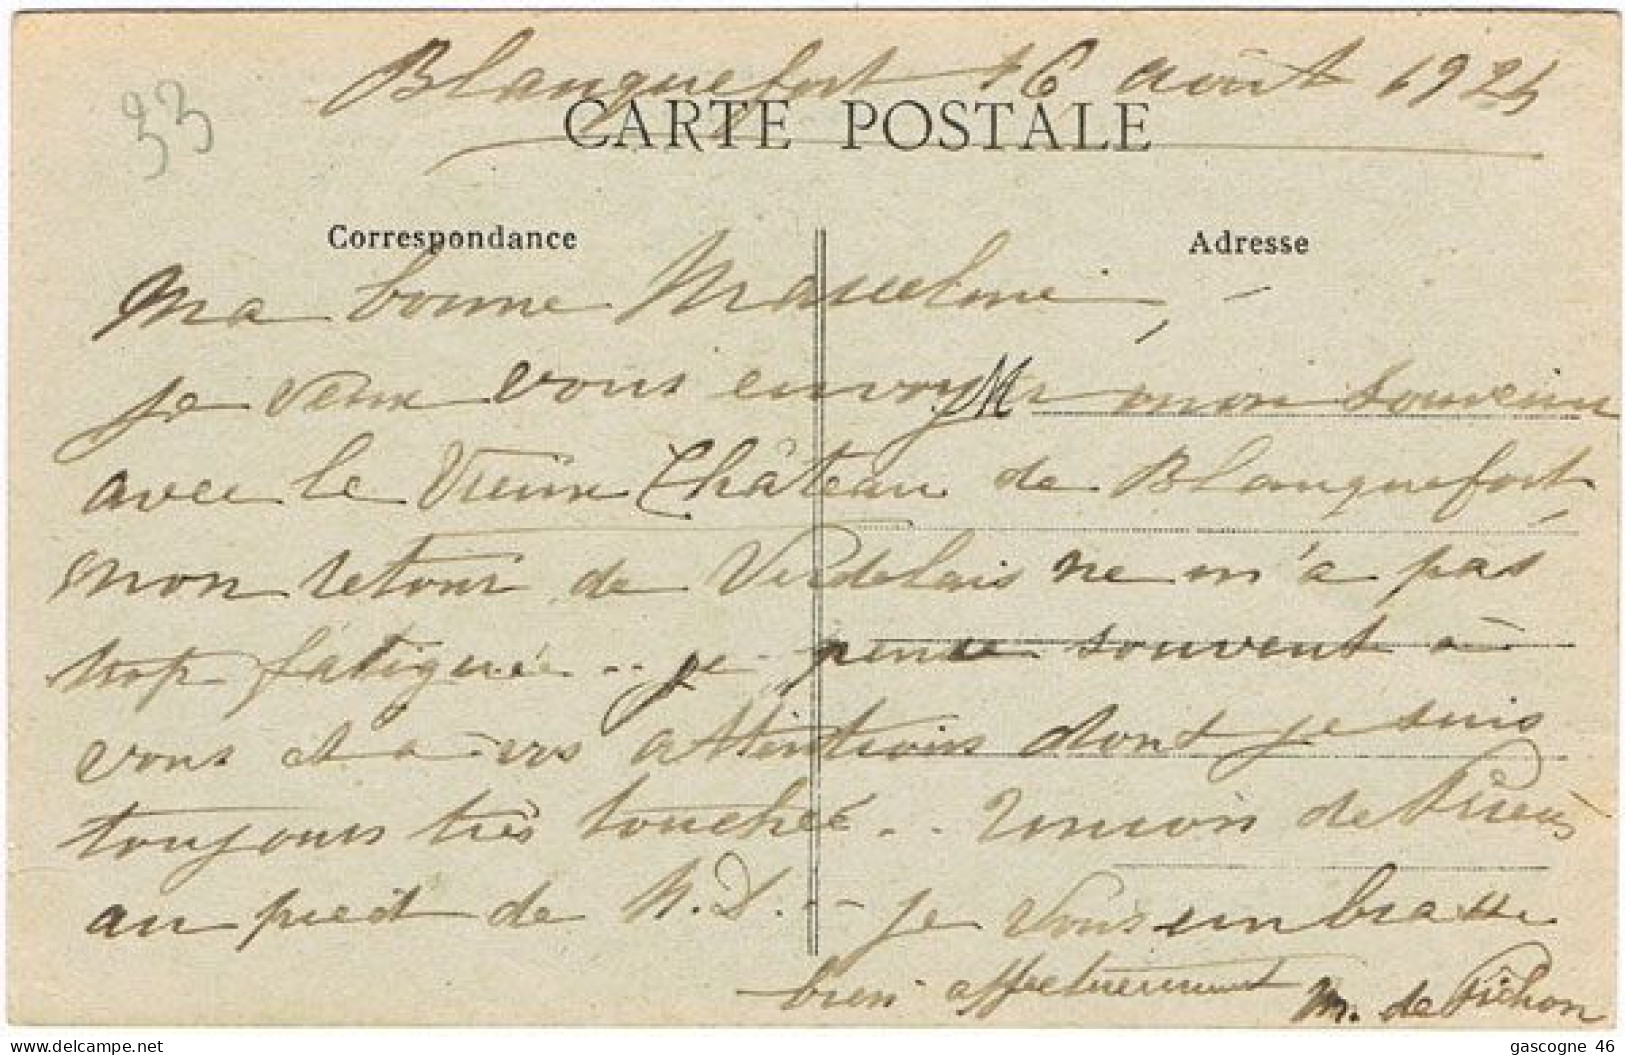 33
Blanquefort 16 août 1925
CARTE POSTALE
Correspondance
Adresse
Ma bonne Marceline,
je veux vous envoyer mon souvenir
avec le Vieux Château de Blanquefort,
mon retour de Verdelais ne m'a pas
trop fatiguée .. je pense souvent à
vous et à vos attentions dont je suis
toujours très touchée .. Union de Prières
au pied de N.D. - je vous embrasse
bien affectueusement M. de Pichon
gascogne 46